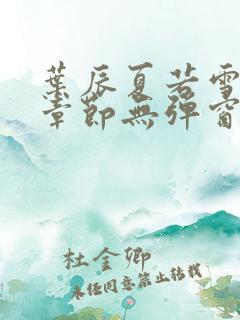 葉辰夏若雪
章節無彈窗
杜金卿
未經同意禁止轉載